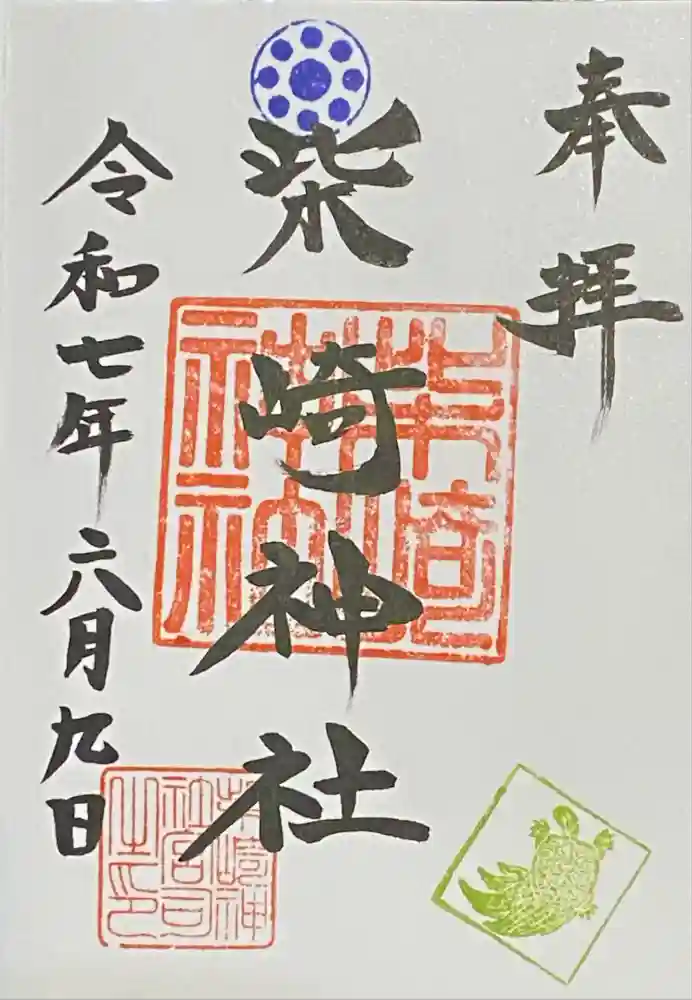 奉拝
柴崎神社
柴崎神社
令和七年六月九日
柴崎神社宮司之印